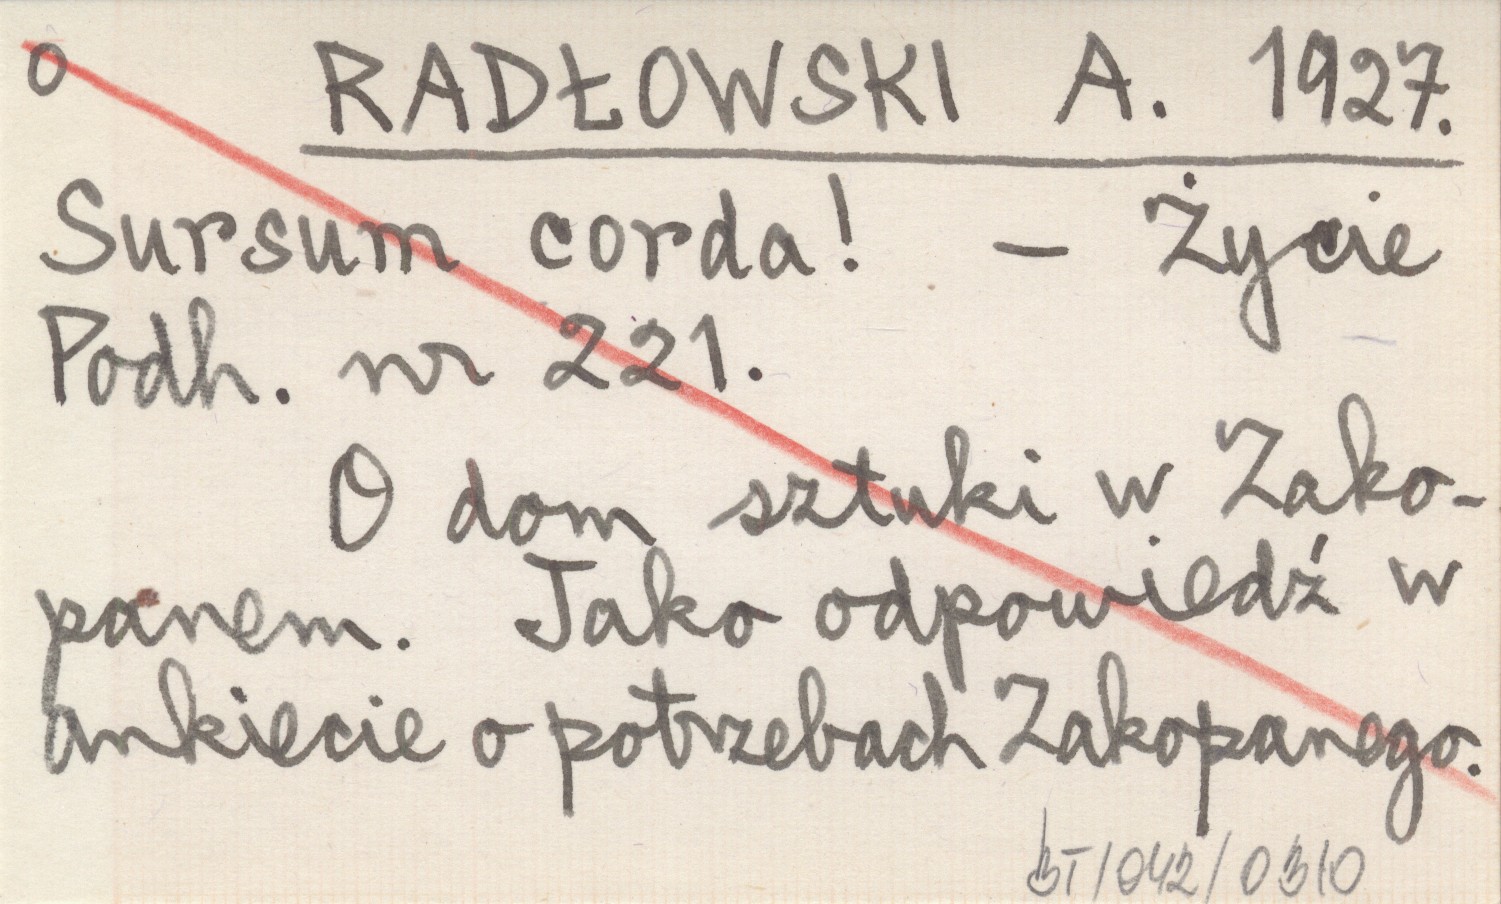 o RADŁOWSKI A. 1927.
Sursum corda! – Życie
Podh. nr 221.
O dom sztuki w Zako-
panem. Jako odpowiedź w
ankiecie o potrzebach Zakopanego.
BT/042/0310